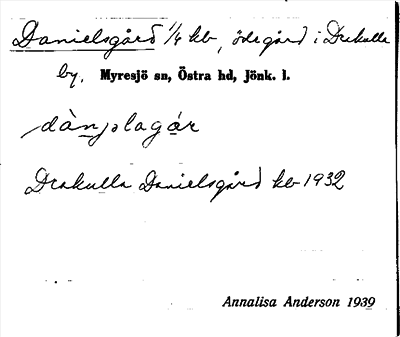 Danielsgård 1/4 kb, ödegård i Drakulla
by, Myresjö sn, Östra hd, Jönk. l.
dànɩ̯slagár
Drakulla Danielsgård kb 1932
Annalisa Anderson 1939